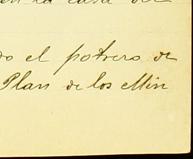 en la casa del
do el potrero de
Plan de los Min